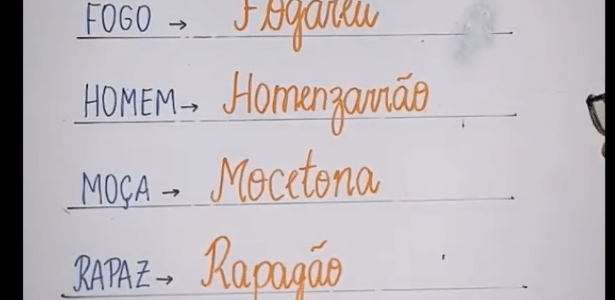 FOGO → Fogaréu
HOMEM → Homenzarrão
MOÇA → Mocetona
RAPAZ → Rapagão